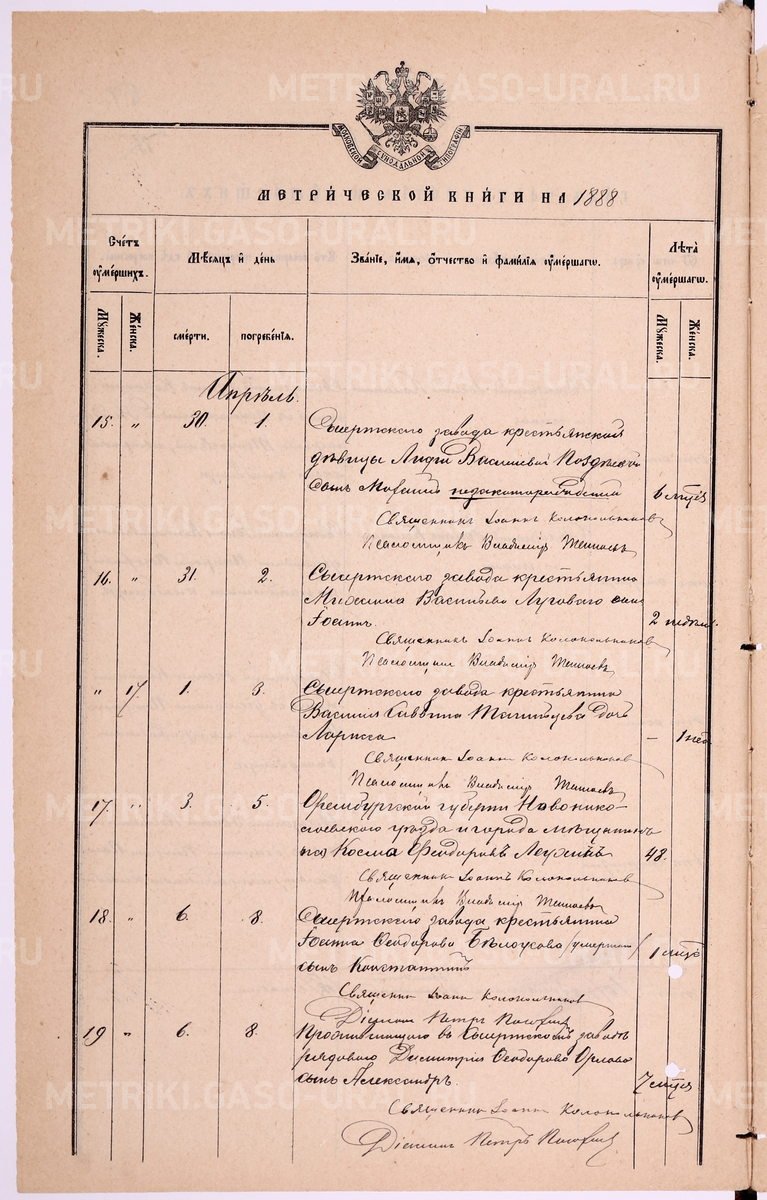 METRIKI.GASO-URAL.RU
МОСКОВСКОЙ СѴНОДАЛЬНОЙ ТИПОГРАФІИ
МЕТРИ́ЧЕСКОЙ КНИ́ГИ НА 1888
Сче́тъ ᲂу҆ме́ршихъ.
Мѣ́сяцъ и҆ де́нь
Зва́нїе, и҆́мя, ѻ҆́тчество и҆ фами́лїя ᲂу҆ме́ршагѡ.
Лѣ́та ᲂу҆ме́ршагѡ.
Мꙋ́жеска.
Же́нска.
сме́рти.
погребе́нїя.
Мꙋ́жеска.
Же́нска.
Апрѣль.
15. " 30. 1. Сысертскаго завода крестьянской
дѣвицы Лидіи Васильевой
сынъ 6 мѣсяц
Священникъ Іоаннъ Колокольниковъ
Псаломщикъ Владиміръ
16. " 31. 2. Сысертскаго завода крестьянина
Михаила Васильева Луговаго сынъ
Іоаннъ. 2 недѣли.
Священникъ Іоаннъ Колокольниковъ
Псаломщикъ Владиміръ
" 17 1. 3. Сысертскаго завода крестьянина
Василія Саввина дочь
Ларисса — 1 нед
Священникъ Іоаннъ Колокольниковъ
Псаломщикъ Владиміръ
17. " 3. 5. Оренбургской губерніи Новонико-
лаевскаго уѣзда и города мѣщанинъ
Косма Ѳеодоровъ 48.
Священникъ Іоаннъ Колокольниковъ
Псаломщикъ Владиміръ
18. " 6. 8. Сысертскаго завода крестьянина
Іоанна Ѳеодорова Бѣлоусова /умершаго/
сынъ Константинъ 1 мѣсяц
Священникъ Іоаннъ Колокольниковъ
Діаконъ Петръ
19 " 6. 8. Проживающаго въ Сысертскомъ заводѣ
рядоваго Димитрія Ѳеодорова Орлова
сынъ Александръ. 7 мѣсяц
Священникъ Іоаннъ Колокольниковъ
Діаконъ Петръ